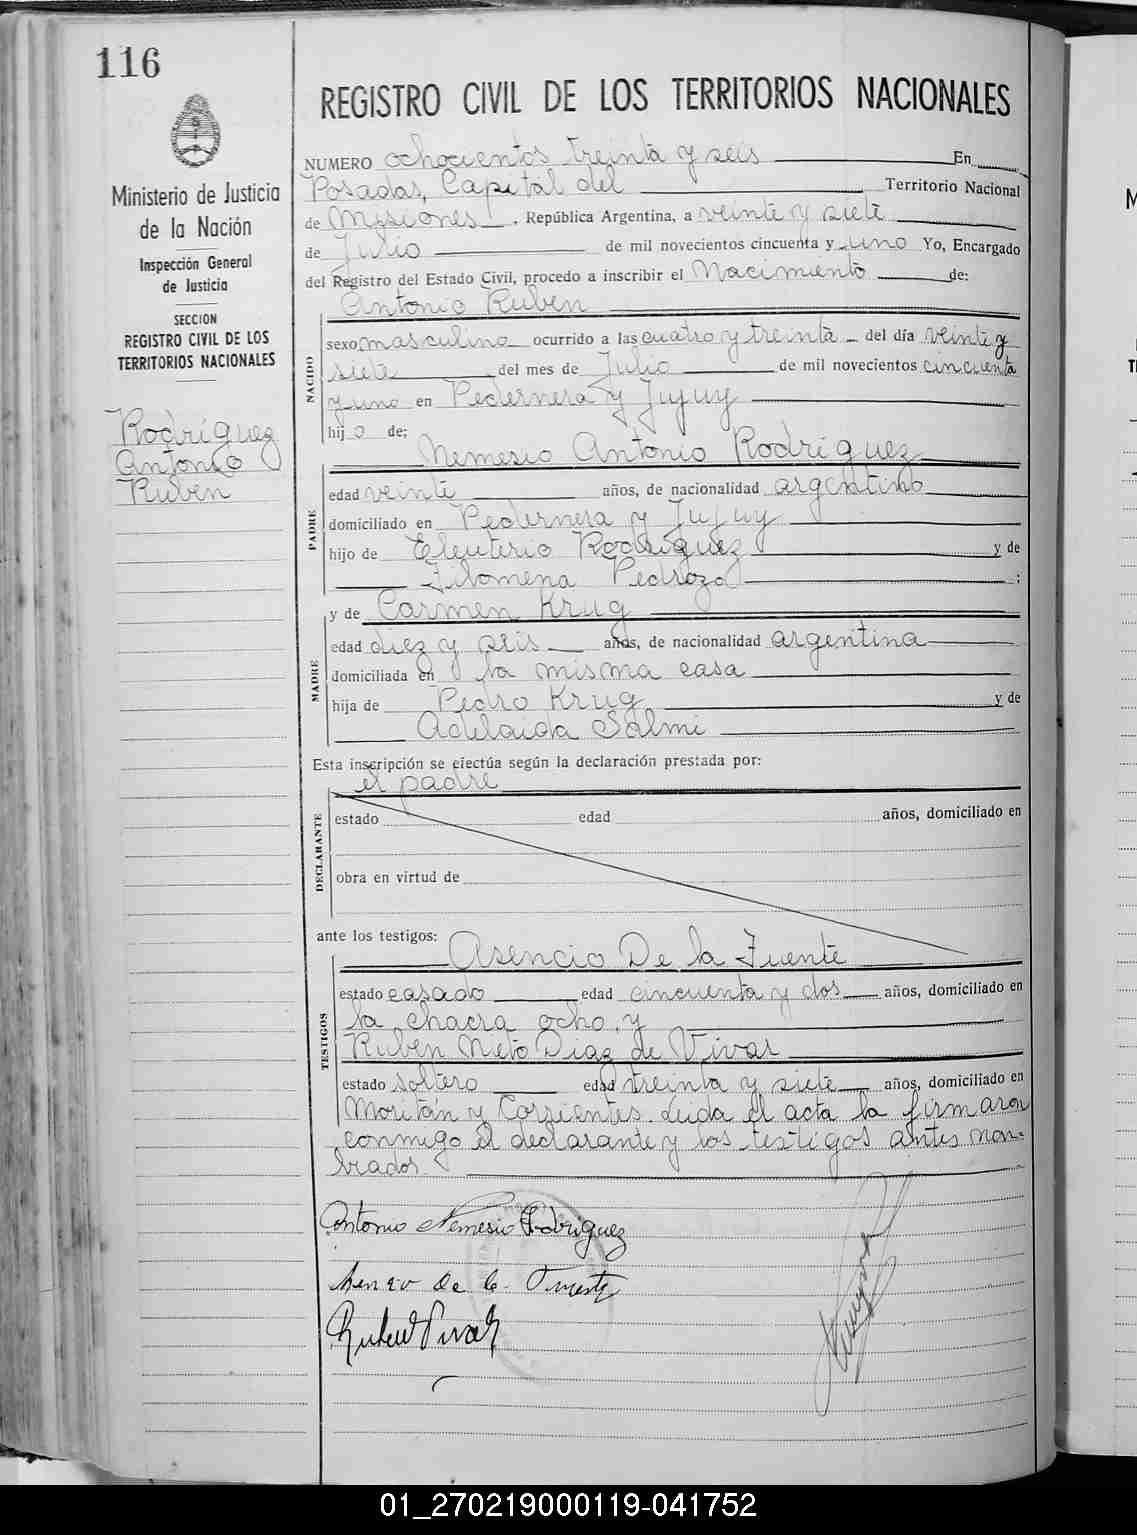 116
Ministerio de Justicia
de la Nación
Inspección General
de Justicia
SECCION
REGISTRO CIVIL DE LOS
TERRITORIOS NACIONALES
Rodríguez
Antonio
Ruben
REGISTRO CIVIL DE LOS TERRITORIOS NACIONALES
NUMERO ochocientos treinta y seis En
Posadas, Capital del Territorio Nacional
de Misiones, República Argentina, a veinte y siete
de Julio de mil novecientos cincuenta y uno Yo, Encargado
del Registro del Estado Civil, procedo a inscribir el Nacimiento de:
Antonio Ruben
NACIDO
sexo masculino ocurrido a las cuatro y treinta del día veinte y
siete del mes de Julio de mil novecientos cincuenta
y uno en Pedernera y Jujuy
hijo de;
Nemesio Antonio Rodríguez
PADRE
edad veinte años, de nacionalidad argentino
domiciliado en Pedernera y Jujuy
hijo de Eleuterio Rodríguez y de
Filomena Pedrozo;
y de Carmen Krug
MADRE
edad diez y seis años, de nacionalidad argentina
domiciliada en la misma casa
hija de Pedro Krug y de
Adelaida Salmi
Esta inscripción se efectúa según la declaración prestada por:
el padre
DECLARANTE
estado edad años, domiciliado en
obra en virtud de
ante los testigos:
Asencio De la Fuente
TESTIGOS
estado casado edad cincuenta y dos años, domiciliado en
la chacra ocho, y
Ruben Nieto Diaz de Vivar
estado soltero edad treinta y siete años, domiciliado en
Moritán y Corrientes. Leida el acta la firmaron
conmigo el declarante y los testigos antes nom-
brados
Antonio Nemesio Rodriguez
Asencio De la Fuente
Ruben Vivar
01_270219000119-041752